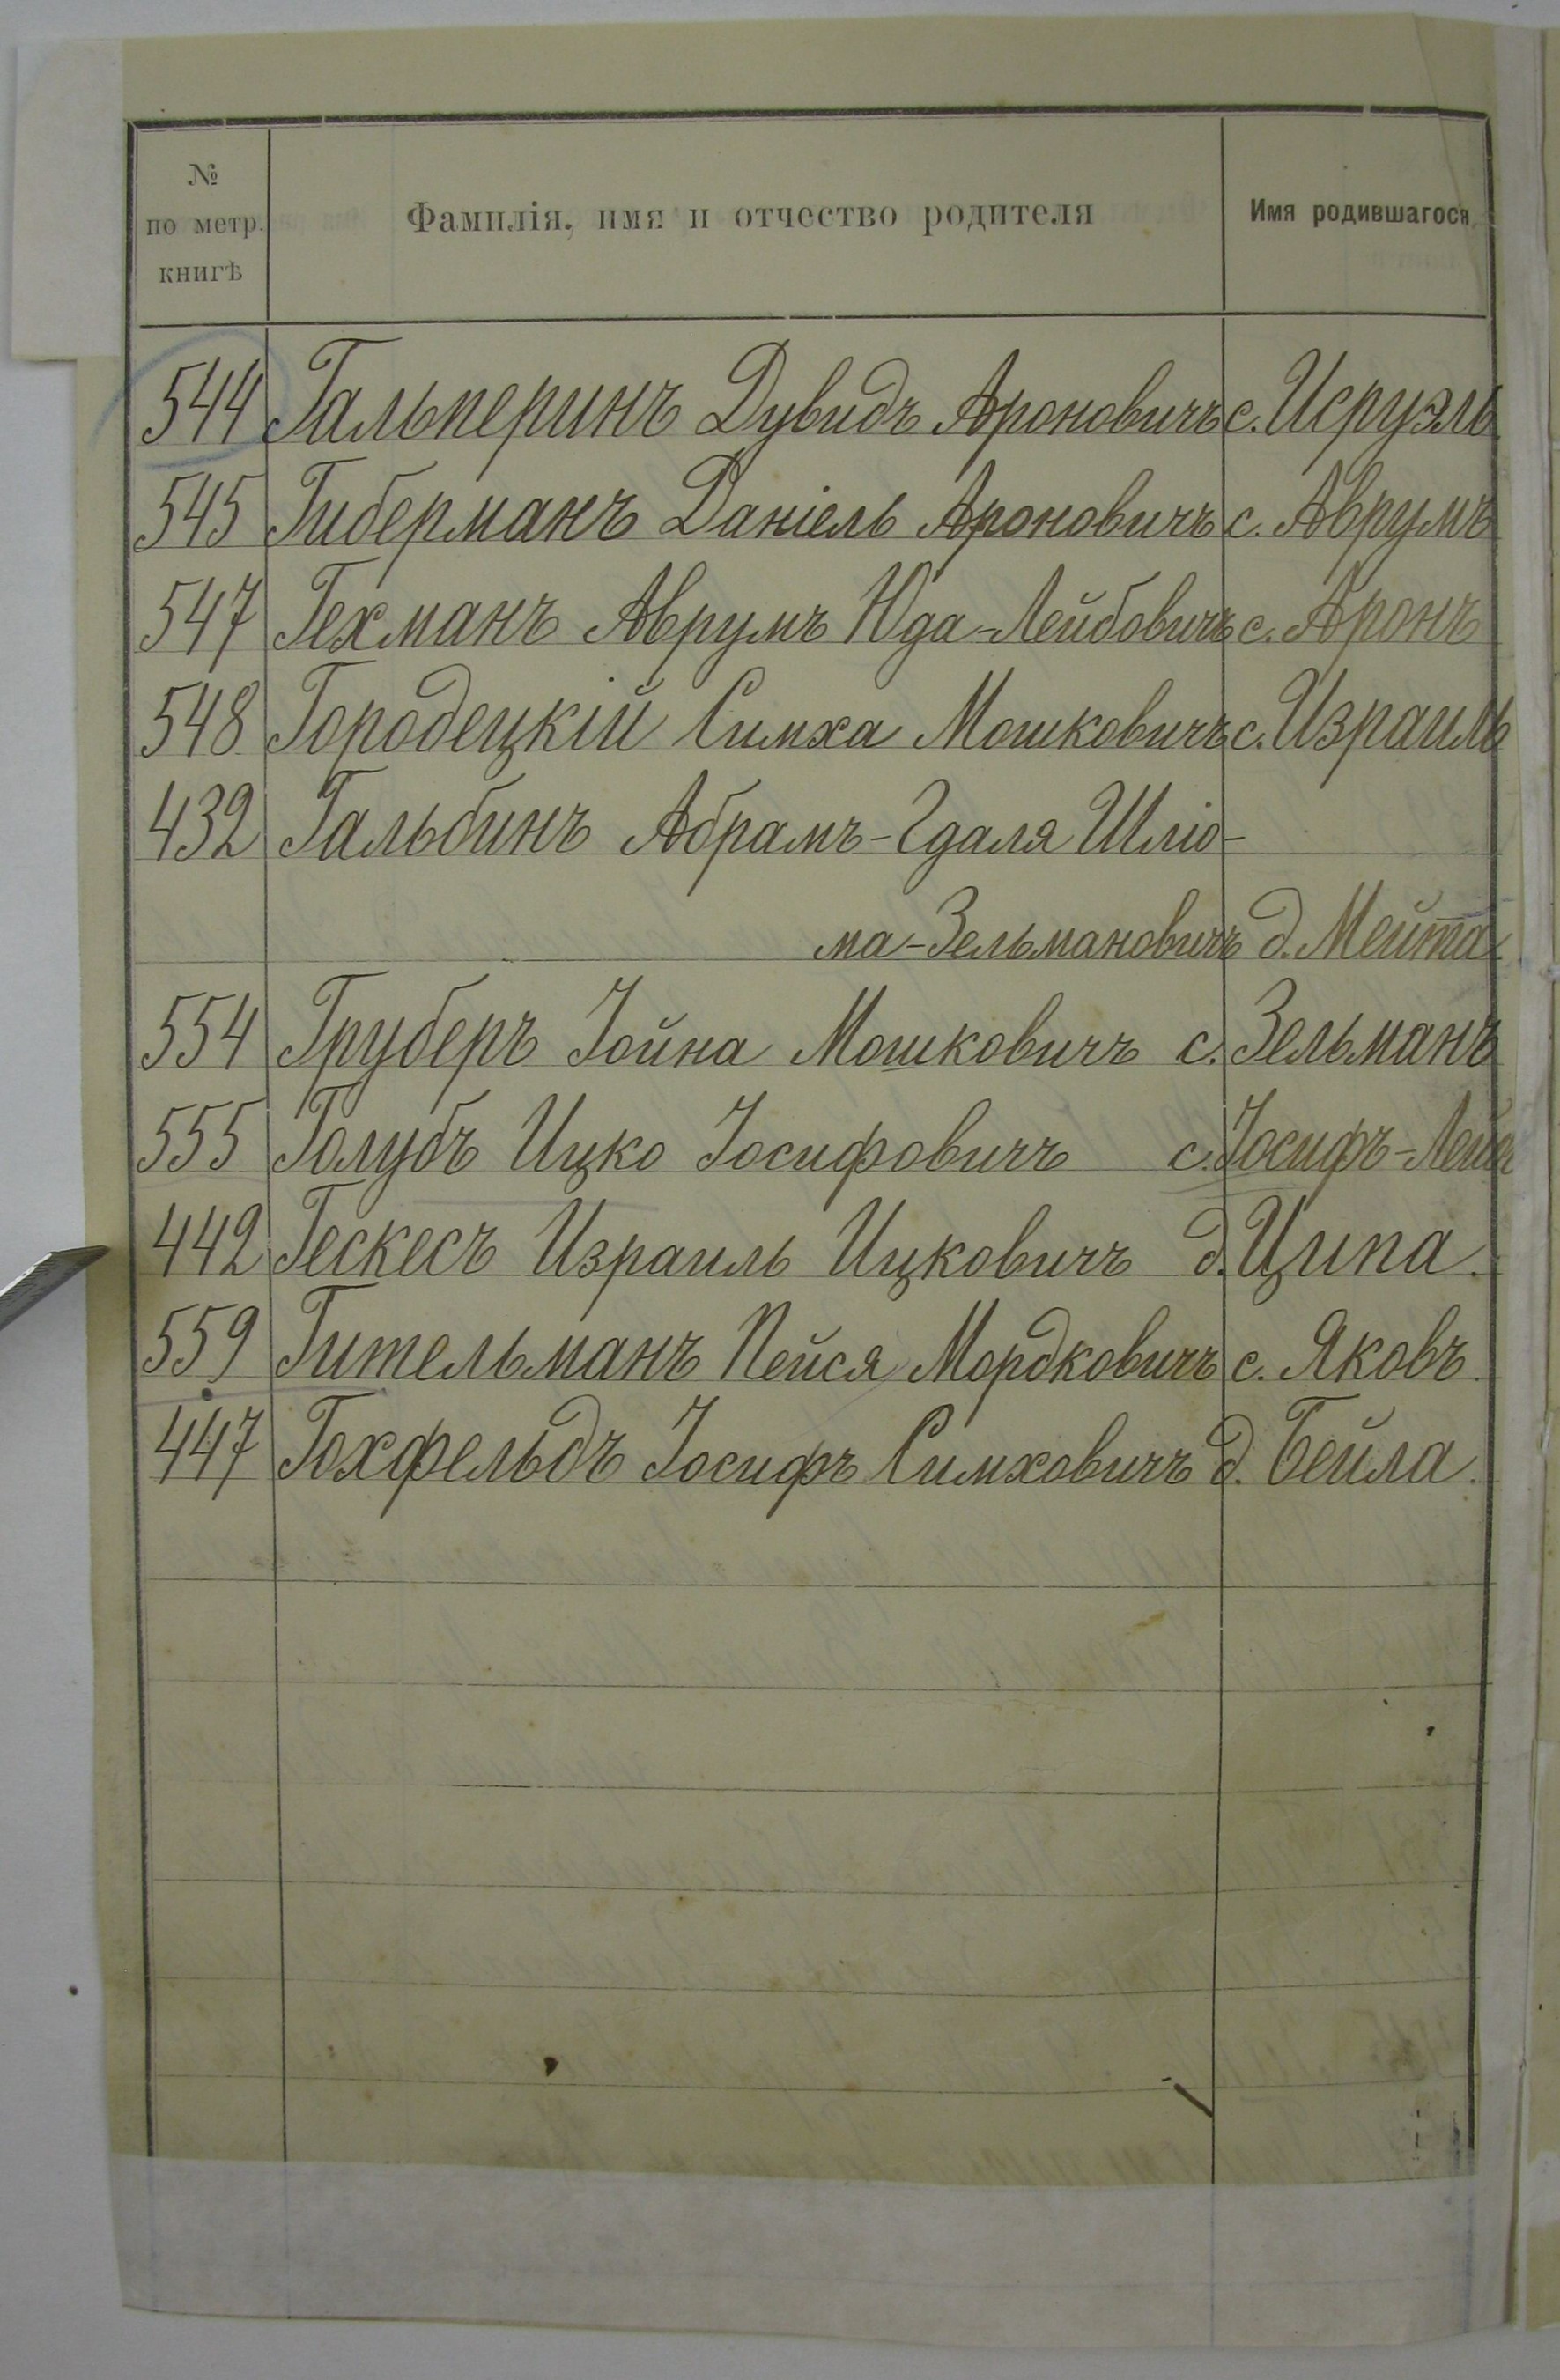 № по метр. книгѣ Фамилія, имя и отчество родителя Имя родившагося
544 Гальперинъ Дувидъ Ароновичъ с. Исруэль
545 Гиберманъ Даніель Ароновичъ с. Аврумъ
547 Гехманъ Аврумъ Юда-Лейбовичъ с. Аронъ
548 Городецкій Симха Мошковичъ с. Израиль
432 Гальбинъ Абрамъ-Гдаля Шліо-
ма-Зельмановичъ д. Мейта
554 Груберъ Іойна Мошковичъ с. Зельманъ
555 Голубъ Ицко Іосифовичъ с. Іосифъ-
442 Гескесъ Израиль Ицковичъ д. Ципа.
559 Гительманъ Пейся Мордковичъ с. Яковъ.
447 Гохфельдъ Іосифъ Симховичъ д. Бейла.